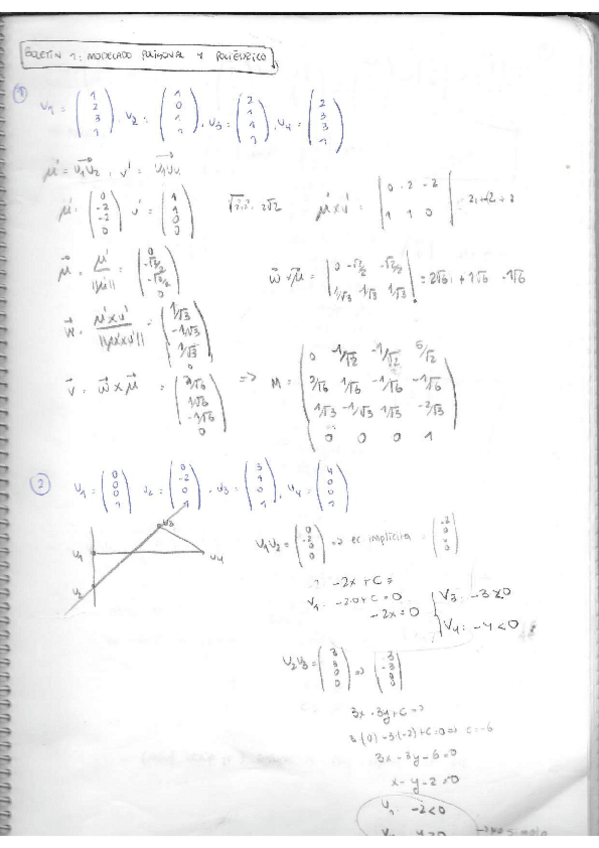 BOLETIN 1: MODELADO POLIGONAL Y POLIÉDRICO
① V1 = (1 2 3 1), V2 = (1 0 1 1), V3 = (2 1 1 1), V4 = (2 3 3 1)
μ' = V1V2, v' = V1V4
μ' = (0 -2 -2 0) v' = (1 1 0 0) μ'xv' = | 0 -2 -2 / 1 1 0 |
μ = μ'/||μ'|| = (0 -√2/2 -√2/2 0) w x μ = | 0 -√2/2 -√2/2 / 1/√3 1/√3 1/√3 | = 2√6 + 1√6 - 1√6
w = μ'xv'/||μ'xv'|| = (1/√3 -1/√3 1/√3
v = w x μ = (2/√6 1/√6 -1/√6 0) => M = (0 -1/√2 -1/√2 5/√2
1/√6 -1/√6 -1/√6
1/√3 -1/√3 1/√3 -2/√3
0 0 0 1)
② V1 = (0 0 0 1) V2 = (0 -2 0 1), V3 = (3 1 0 1), V4 = (4 0 0 1)
V3
V1
V4
V2
V1V2 = (0 -2 0 0) => ec implícita = (-2 0 0 0)
-2x + C =
V1: -2·0 + C = 0
-2x = 0
V3: -3 < 0
V4: -4 < 0
V2V3 = (3 3 0 0) => (3 -3 0 0)
3x - 3y + C =>
3(0) - 3(-2) + C = 0 => C = -6
3x - 3y - 6 = 0
x - y - 2 = 0
V1 -2 < 0